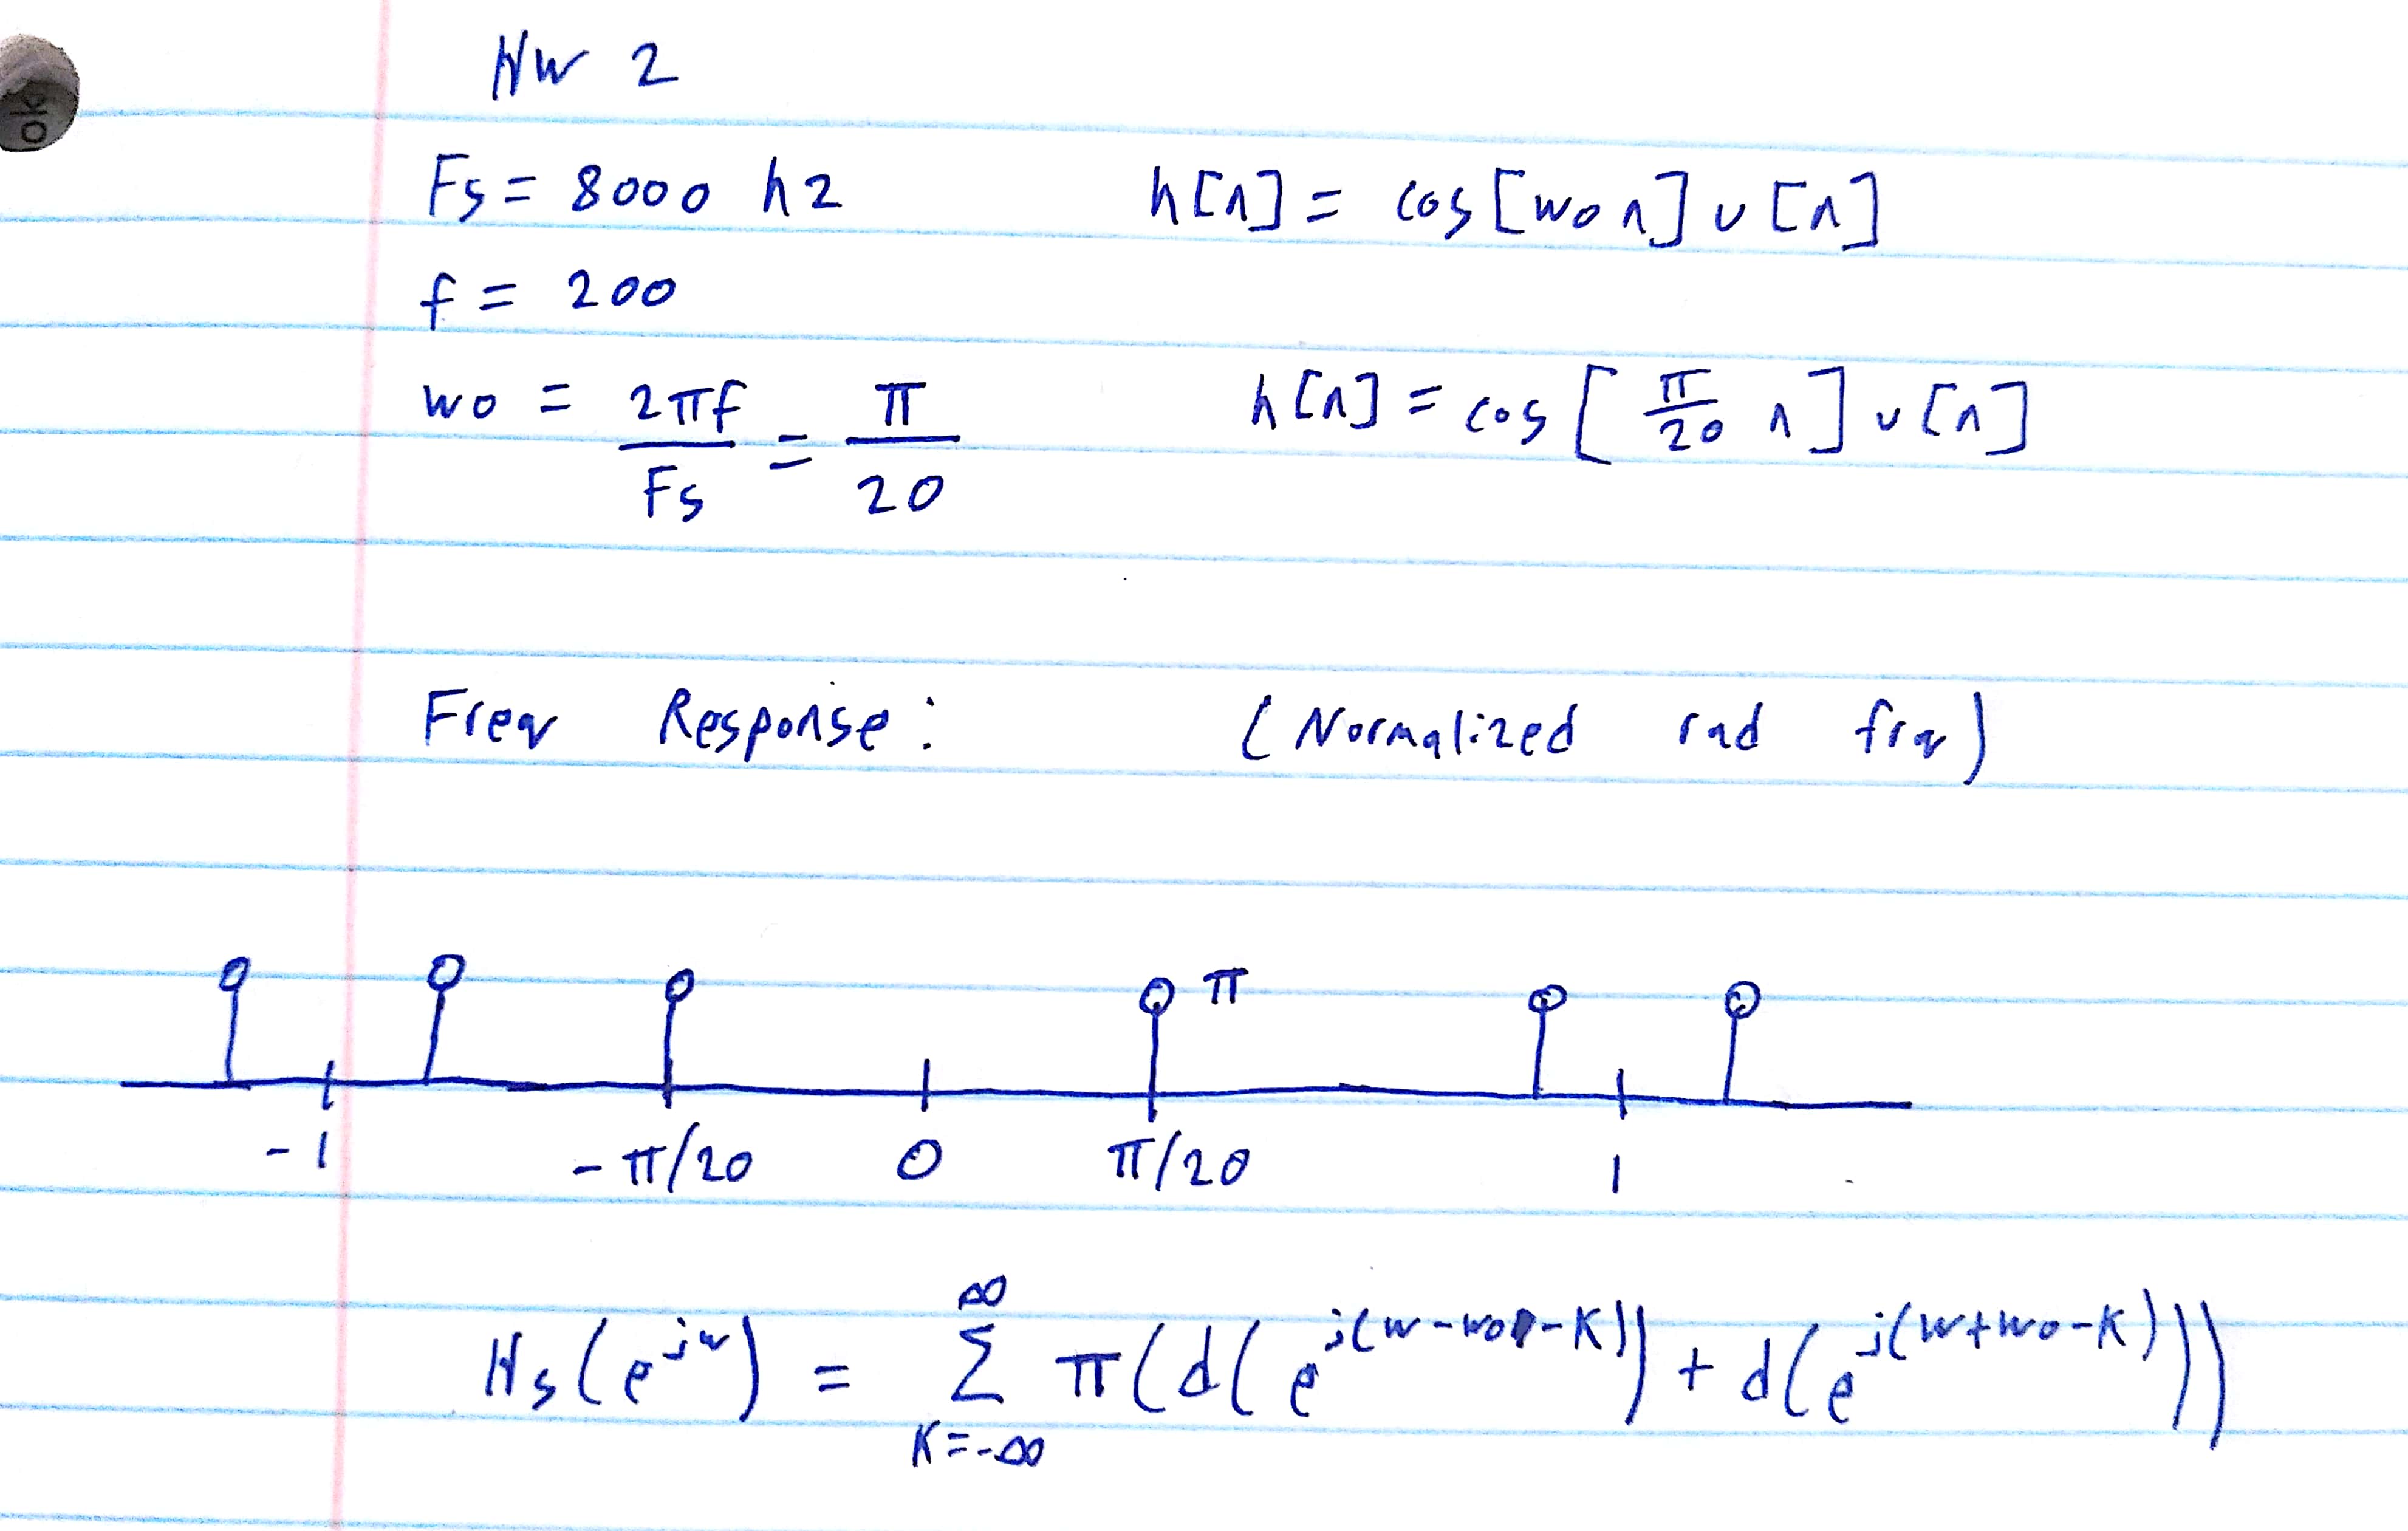 HW 2
Fs = 8000 hz
h[n] = cos[won] u[n]
f = 200
wo = 2πf/Fs = π/20
h[n] = cos[π/20 n] u[n]
Freq Response: (Normalized rad frq)
π
-1 -π/20 0 π/20 1
Hs(e^jw) = ∑ K=-∞ ∞ π(d(e^j(w-wo-K)) + d(e^j(w+wo-K)))